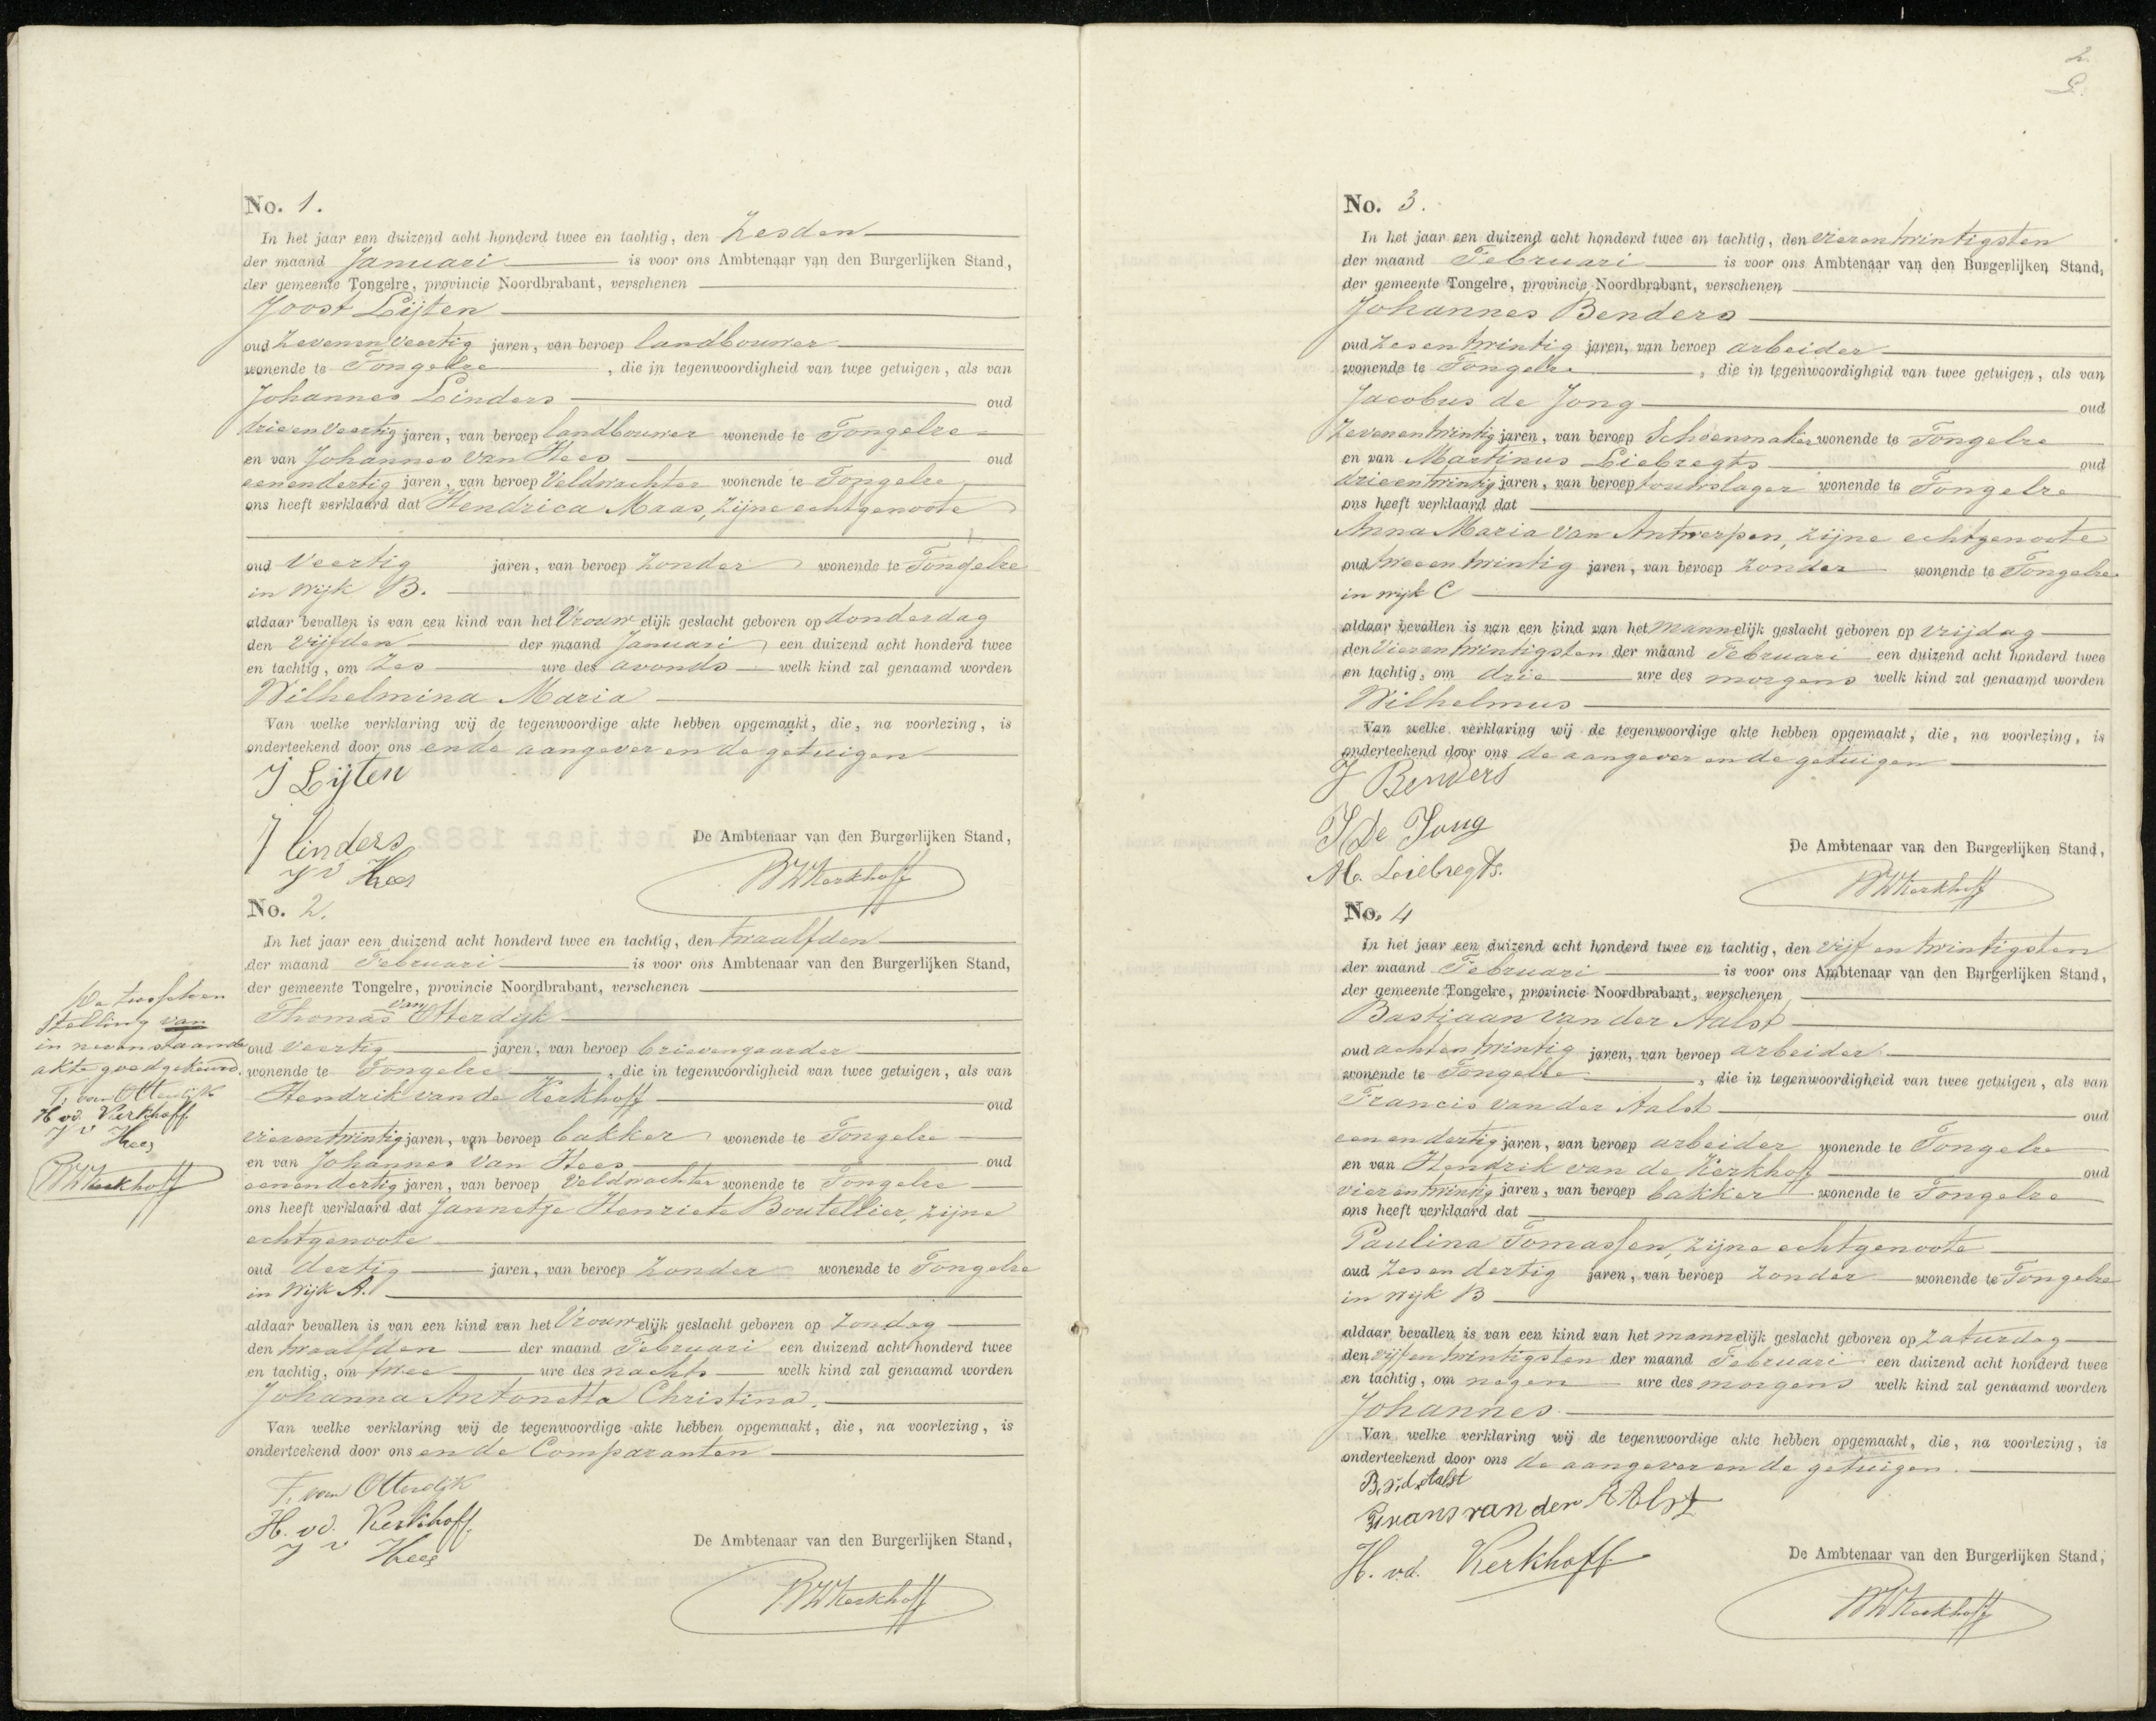 No. 1.
In het jaar een duizend acht honderd twee en tachtig, den Zesden
der maand Januari is voor ons Ambtenaar van den Burgerlijken Stand,
der gemeente Tongelre, provincie Noordbrabant, verschenen
Joost Lijten
oud Zevenenveertig jaren, van beroep landbouwer
wonende te Tongelre, die in tegenwoordigheid van twee getuigen, als van
Johannes Linders oud
drieenveertig jaren, van beroep landbouwer wonende te Tongelre
en van Johannes van Hees oud
eenendertig jaren, van beroep Veldwachter wonende te Tongelre
ons heeft verklaard dat Hendrica Maas, zijne echtgenoote
oud Veertig jaren, van beroep Zonder wonende te Tongelre
in wijk B.
aldaar bevallen is van een kind van het Vrouwelijk geslacht geboren op donderdag
den vijfden der maand Januari een duizend acht honderd twee
en tachtig, om Zes ure des avonds welk kind zal genaamd worden
Wilhelmina Maria
Van welke verklaring wij de tegenwoordige akte hebben opgemaakt, die, na voorlezing, is
onderteekend door ons en de aangever en de getuigen
J Lijten
J linders
J v Hees
De Ambtenaar van den Burgerlijken Stand,
No. 2.
In het jaar een duizend acht honderd twee en tachtig, den twaalfden
der maand Februari is voor ons Ambtenaar van den Burgerlijken Stand,
der gemeente Tongelre, provincie Noordbrabant, verschenen
Thomas van Otterdijk
oud veertig jaren, van beroep brievengaarder
wonende te Tongelre, die in tegenwoordigheid van twee getuigen, als van
Hendrik van de Kerkhoff oud
vierentwintig jaren, van beroep bakker wonende te Tongelre
en van Johannes van Hees oud
eenendertig jaren, van beroep Veldwachter wonende te Tongelre
ons heeft verklaard dat Jannetje Henriete Boutellier, zijne
echtgenoote
oud dertig jaren, van beroep Zonder wonende te Tongelre
in wijk A.
aldaar bevallen is van een kind van het Vrouwelijk geslacht geboren op Zondag
den twaalfden der maand Februari een duizend acht honderd twee
en tachtig, om twee ure des nachts welk kind zal genaamd worden
Johanna Antonetta Christina.
Van welke verklaring wij de tegenwoordige akte hebben opgemaakt, die, na voorlezing, is
onderteekend door ons en de Comparanten
T. van Otterdijk
H. vd. Kerkhoff
J v Hees
De Ambtenaar van den Burgerlijken Stand,
stelling van
in nevenstaande
akte goedgekeurd.
T. van Otterdijk
H vd. Kerkhoff
J v Hees
No. 3.
In het jaar een duizend acht honderd twee en tachtig, den vierentwintigsten
der maand Februari is voor ons Ambtenaar van den Burgerlijken Stand,
der gemeente Tongelre, provincie Noordbrabant, verschenen
Johannes Benders
oud Zesentwintig jaren, van beroep arbeider
wonende te Tongelre, die in tegenwoordigheid van twee getuigen, als van
Jacobus de Jong oud
Zevenentwintig jaren, van beroep Schoenmaker wonende te Tongelre
en van Martinus Liebregts oud
drieentwintig jaren, van beroep touwslager wonende te Tongelre
ons heeft verklaard dat
Anna Maria van Antwerpen, zijne echtgenoote
oud tweeentwintig jaren, van beroep Zonder wonende te Tongelre
in wijk C
aldaar bevallen is van een kind van het mannelijk geslacht geboren op vrijdag
den Vierentwintigsten der maand Februari een duizend acht honderd twee
en tachtig, om drie ure des morgens welk kind zal genaamd worden
Wilhelmus
Van welke verklaring wij de tegenwoordige akte hebben opgemaakt, die, na voorlezing, is
onderteekend door ons de aangever en de getuigen
J Benders
J De Jong
M. Leiebregts.
De Ambtenaar van den Burgerlijken Stand,
No. 4
In het jaar een duizend acht honderd twee en tachtig, den vijf en twintigsten
der maand Februari is voor ons Ambtenaar van den Burgerlijken Stand,
der gemeente Tongelre, provincie Noordbrabant, verschenen
Bastiaan van der Aalst
oud achtentwintig jaren, van beroep arbeider
wonende te Tongelre, die in tegenwoordigheid van twee getuigen, als van
Francis van der Aalst oud
eenendertig jaren, van beroep arbeider wonende te Tongelre
en van Hendrik van de Kerkhoff oud
vierentwintig jaren, van beroep bakker wonende te Tongelre
ons heeft verklaard dat
Paulina Tomassen, zijne echtgenoote
oud Zesendertig jaren, van beroep Zonder wonende te Tongelre
in wijk B
aldaar bevallen is van een kind van het mannelijk geslacht geboren op Zaturdag
den vijfentwintigsten der maand Februari een duizend acht honderd twee
en tachtig, om negen ure des morgens welk kind zal genaamd worden
Johannes
Van welke verklaring wij de tegenwoordige akte hebben opgemaakt, die, na voorlezing, is
onderteekend door ons de aangever en de getuigen.
B. v. d. Aalst
Frans van der AAlst
H. v.d. Kerkhoff
De Ambtenaar van den Burgerlijken Stand,